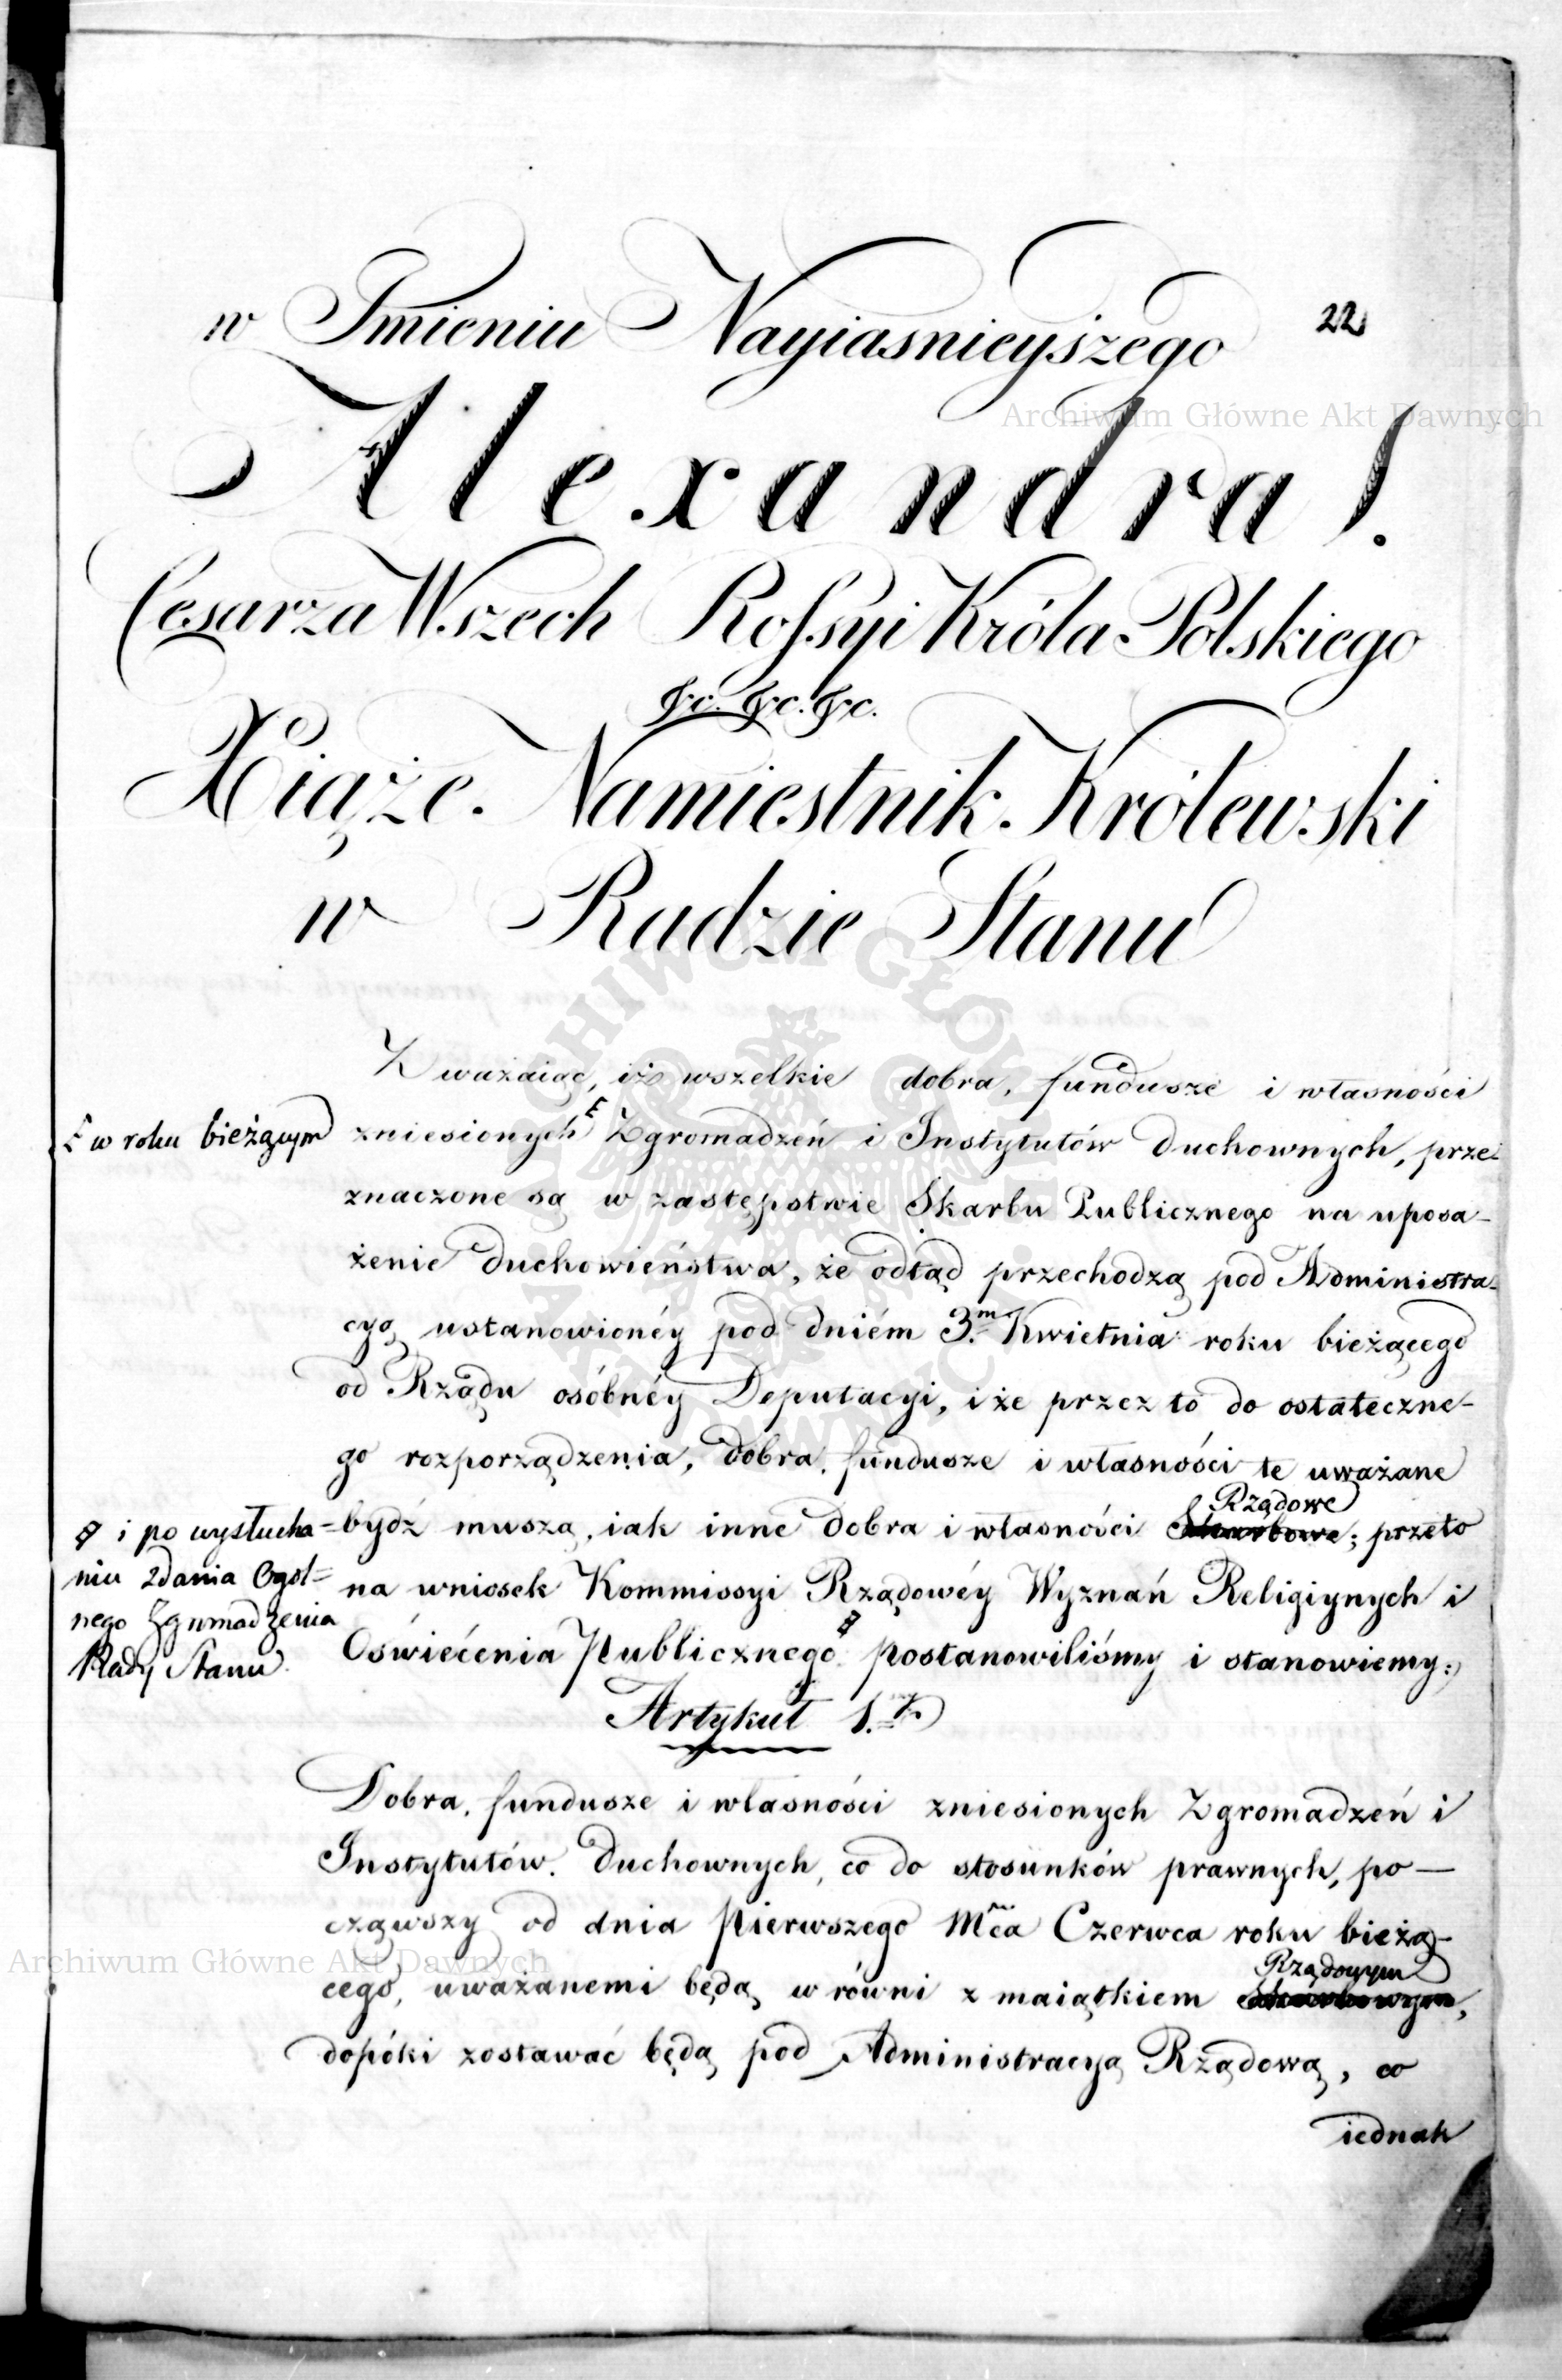 22
w Jmieniu Nayiasnieyszego
Alexandra I.
Cesarza Wszech Rossyi Króla Polskiego
&c. &c. &c.
Xiąże Namiestnik Królewski
w Radzie Stanu
Zważaiąc, iż wszelkie dobra, fundusze i własności
w roku bieżącym
zniesionych Zgromadzeń i Instytutów Duchownych, prze-
znaczone są w zastępstwie Skarbu Publicznego na uposa-
żenie Duchowieństwa, że odtąd przechodzą pod Administra-
cyą ustanowionéy pod dniém 3.m Kwietnia roku bieżącego
od Rządu osóbnéy Deputacyi, i że przez to do ostateczne-
go rozporządzenia, dobra, fundusze i własności te uważane
Rządowe
bydź muszą, iak inne dobra i własności Skarbowe; przeto
na wniosek Kommissyi Rządowéy Wyznań Religiynych i
Oświécenia Publicznego postanowiliśmy i stanowiemy:
i po wysłucha=
niu Zdania Ogól=
nego Zgromadzenia
Rady Stanu.
Artykuł 1.
Dobra, fundusze i własności zniesionych Zgromadzeń i
Instytutów Duchownych, co do stosunków prawnych, po-
cząwszy od dnia Pierwszego Mca Czerwca roku bieżą-
Rządowym
cego, uważanemi będą w równi z maiątkiem Skarbowym,
dopóki zostawać będą pod Administracyą Rządową, co
iednak
Archiwum Główne Akt Dawnych
Archiwum Główne Akt Dawnych